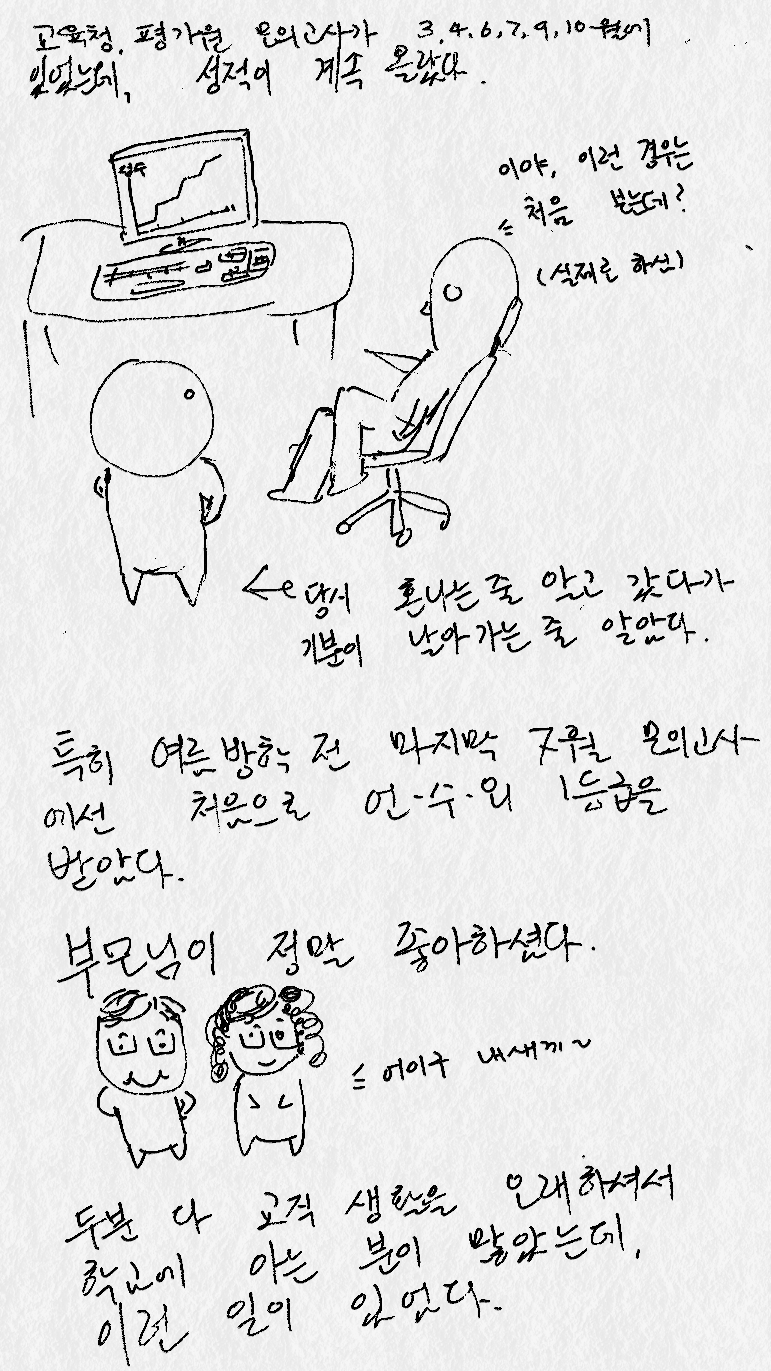 교육청, 평가원 모의고사가 3,4,6,7,9,10월에
있었는데, 성적이 계속 올랐다.
점수
이야, 이런 경우는
처음 보는데?
(실제로 하신)
당시 혼나는 줄 알고 갔다가
기분이 날아가는 줄 알았다.
특히 여름방학 전 마지막 7월 모의고사
에선 처음으로 언·수·외 1등급을
받았다.
부모님이 정말 좋아하셨다.
어이구 내새끼~
두분 다 교직 생활을 오래하셔서
학교에 아는 분이 많았는데,
이런 일이 있었다.